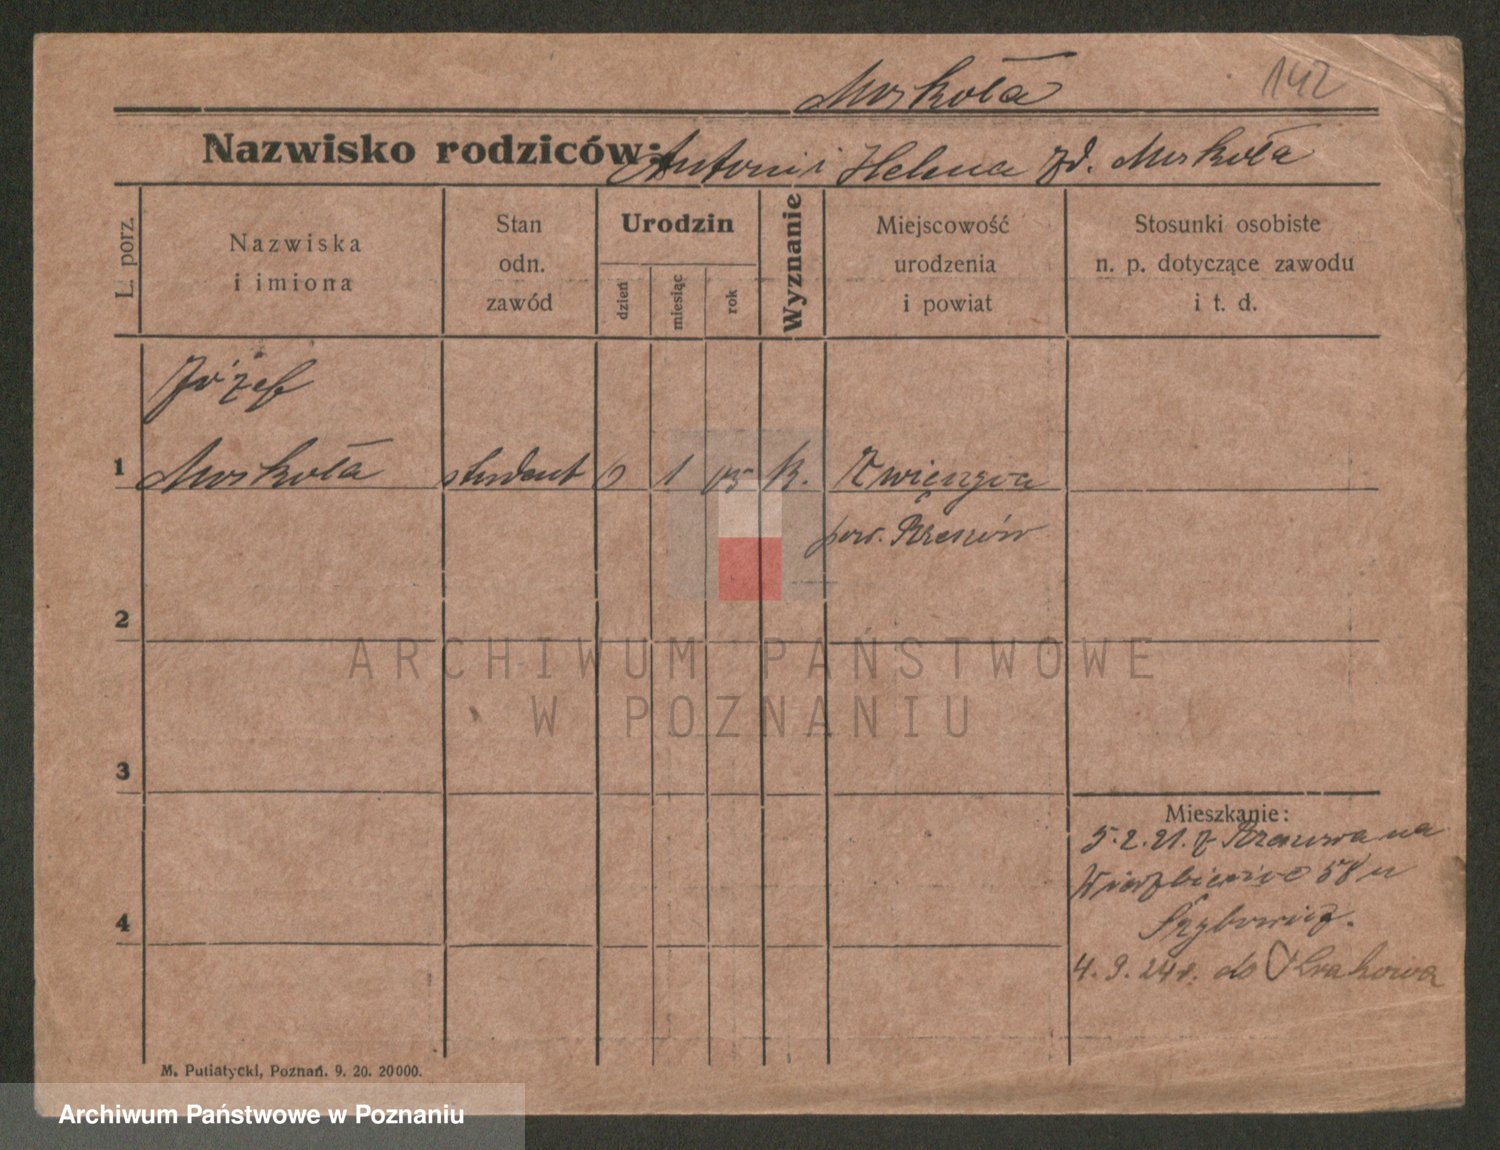 Moskoła
142
Nazwisko rodziców: Antoni i Helena zd. Moskoła
L. porz.
Nazwiska
i imiona
Stan
odn.
zawód
Urodzin
dzień
miesiąc
rok
Wyznanie
Miejscowość
urodzenia
i powiat
Stosunki osobiste
n. p. dotyczące zawodu
i t. d.
Józef
1 Moskoła student 6 1 05 k.
pow.
2
3
4
Mieszkanie:
5.2.21. z na
Wierzbięcice 58 u
4.9.24 r. do Krakowa
M. Putiatycki, Poznań. 9. 20. 20000.
ARCHIWUM PAŃSTWOWE
W POZNANIU
Archiwum Państwowe w Poznaniu